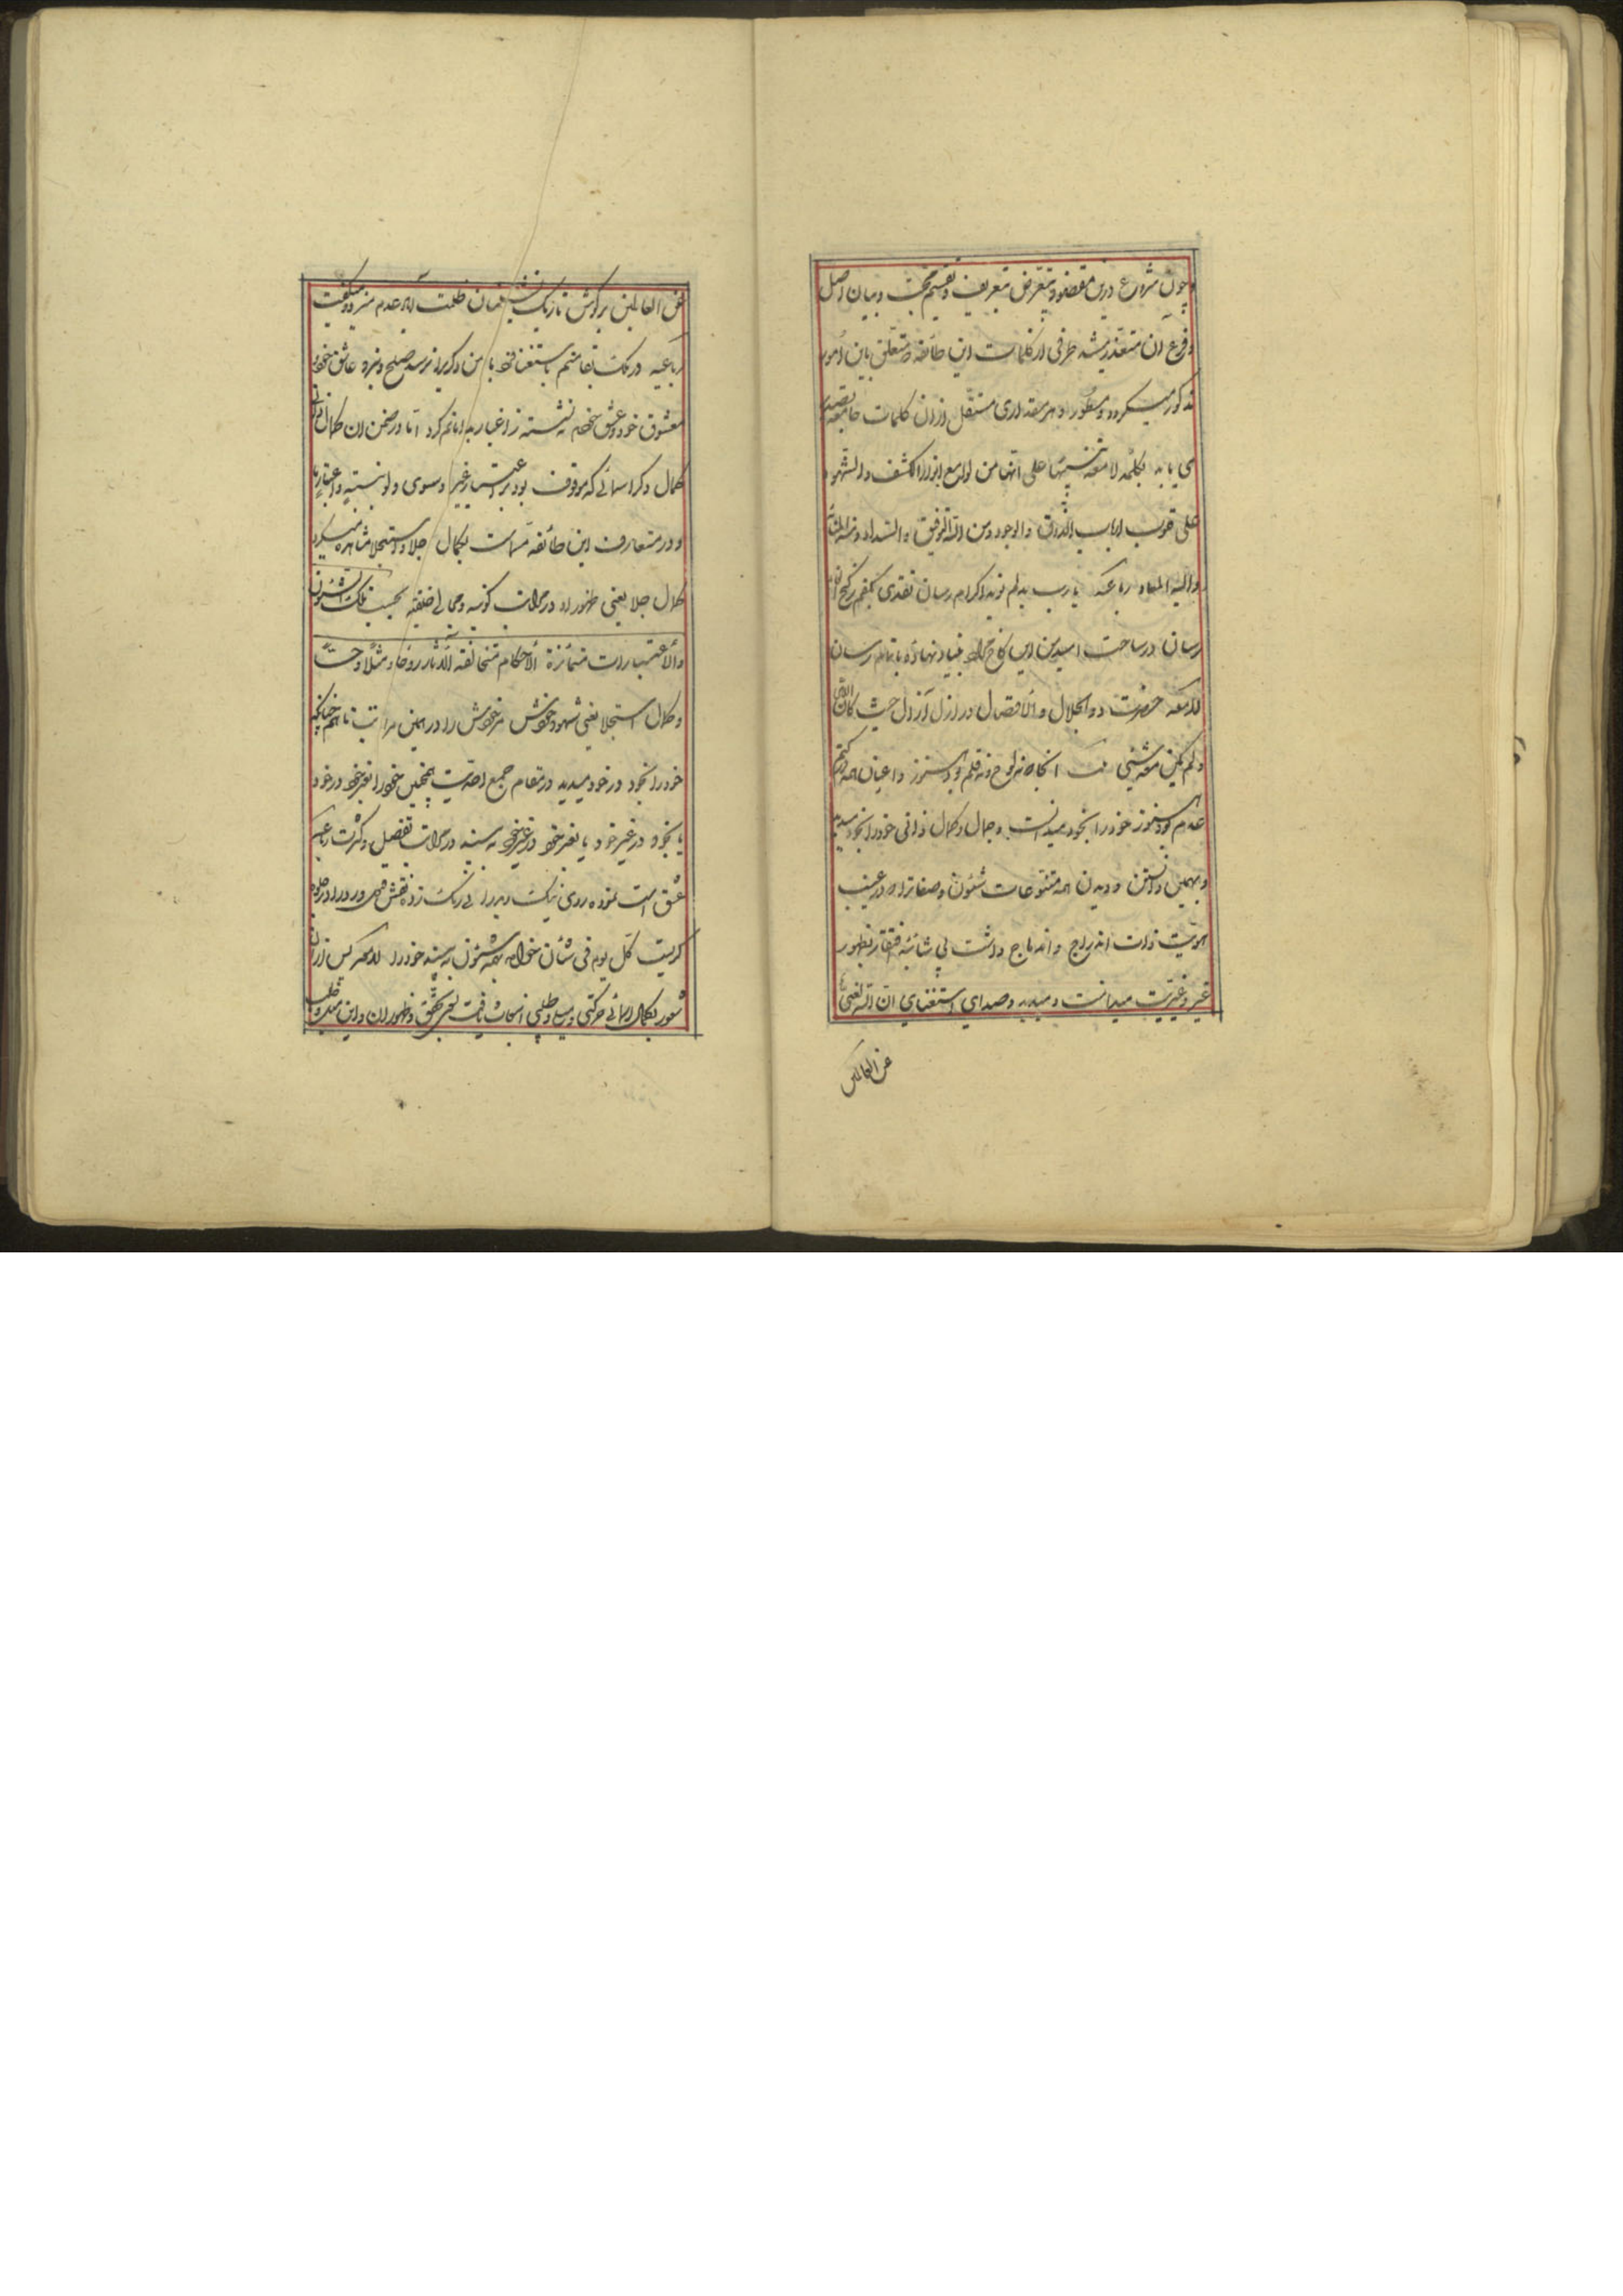 چون شروع درین مقصود بتعرض تعریف و تقسیم محبت و بیان اصل
و فرع آن متعذر بشد طرفی از کلمات این طائفه که متعلق باین امور
مذکور میگردد و مسطور و هر مقداری مستقل ازان کلمات جامعه تصدیر
می یابد بکلمه لامعه تنبیها علی انها من لوامع انوار الکشف والشهود
علی قلوب ارباب الذوق والوجود ومن الله التوفیق والسداد ومنه المبدأ
والیه المعاد رباعیه یارب بدلم نوید اکرام رسان نقدی بکفم ز گنج
رسان در ساحت امید من این کاخ مراد بنیاد نهاده باتمام رسان
لامعه حضرت ذوالجلال والافضال در ازل آزال حیث کان الله
ولم یکن معه شیء آنجا که نه لوح و نه قلم بود هنوز و اعیان همه در کتم
عدم بود هنوز خود را بخود میدانست و جمال و کمال ذاتی خود را بخود میدید
و بهمین دانستن و دیدن همه متنوعات شئون و صفاترا که در غیب
هویت ذات اندراج و اندماج داشت بی شائبه افتقار بظهور
غیر و غیریت میدانست و میدید و صدای استغنای ان الله لغنی
عن العالمین
عن العالمین بر گوش تاریک نشینان ظلمت آباد عدم میزد و میگفت
رباعیه در ملک بقا منم باستغنا فرد با من دگریرا نرسد صلح و نبرد عاشق خود
معشوق خود و عشق خودم ننشسته ز اغیار بدامانم گرد اما در ضمن آن کمال
کمال دگر اسمائی که موقوف بود بر اعتبار غیر و سوی ولو بنسبة و اعتبار ما
و در متعارف این طائفه مسماست بکمال جلا و استجلا مشاهده میکرد
کمال جلا یعنی ظهور او در مراتب کونیه و مجالی خلقیه بحسب تلک الشئون
والاعتبارات متمائزة الاحکام متخالفة الآثار روحا و مثالا و حسا
و کمال استجلا یعنی شهود خویش مر خویش را در همین مراتب تا همچنانکه
خود را بخود در خود میدید در مقام جمع احدیت همچنین خود را بغیر خود در خود
یا بخود در غیر خود یا بغیر خود در غیر خود به بیند در مراتب تفصیل و کثرت رباعیه
عشق است نموده روی نیک و بد را بی رنگ زده نقش قبول و رد را در جلوه
گریست کل یوم فی شأن خواهد بهمه شئون به بیند خود را لامعه پس ازان
شعور بکمال اسمائی حرکتی و میلی و طلبی انبعاث یافت بسوی تحقق و ظهور آن و این میل و طلب